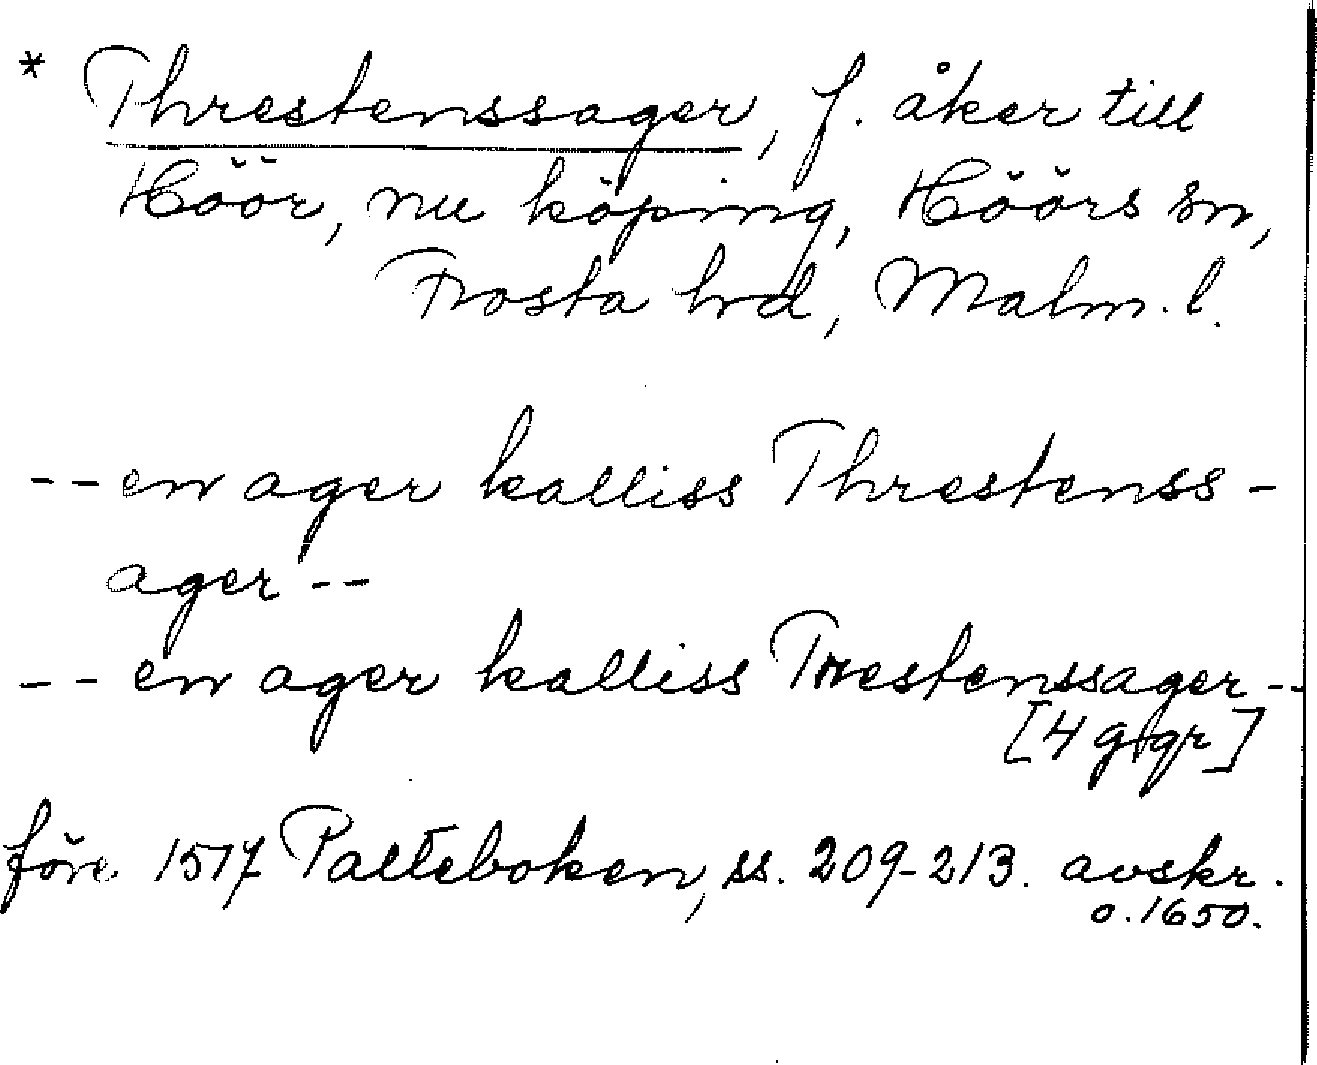 * Threstenssager, f. åker till
Höör, nu köping, Höörs sn,
Frosta hrd, Malm. l.
-- en ager kalliss Threstenss-
ager --
-- en ager kalliss Trestenssager --
[4 ggr]
före 1517 Palteboken, ss. 209-213. avskr.
o. 1650.